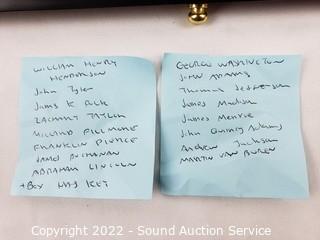 WILLIAM HENRY
HENDERSON
John Tyler
James K Polk
ZACHARY TAYLOR
MILLARD FILLMORE
FRANKLIN PIERCE
JAMES BUCHANAN
ABRAHAM LINCOLN
+ BOX HAS KEY
GEORGE WASHINGTON
JOHN ADAMS
Thomas Jefferson
James Madison
James Monroe
John Quincy Adams
Andrew Jackson
MARTIN VAN BUREN
Copyright 2022 - Sound Auction Service